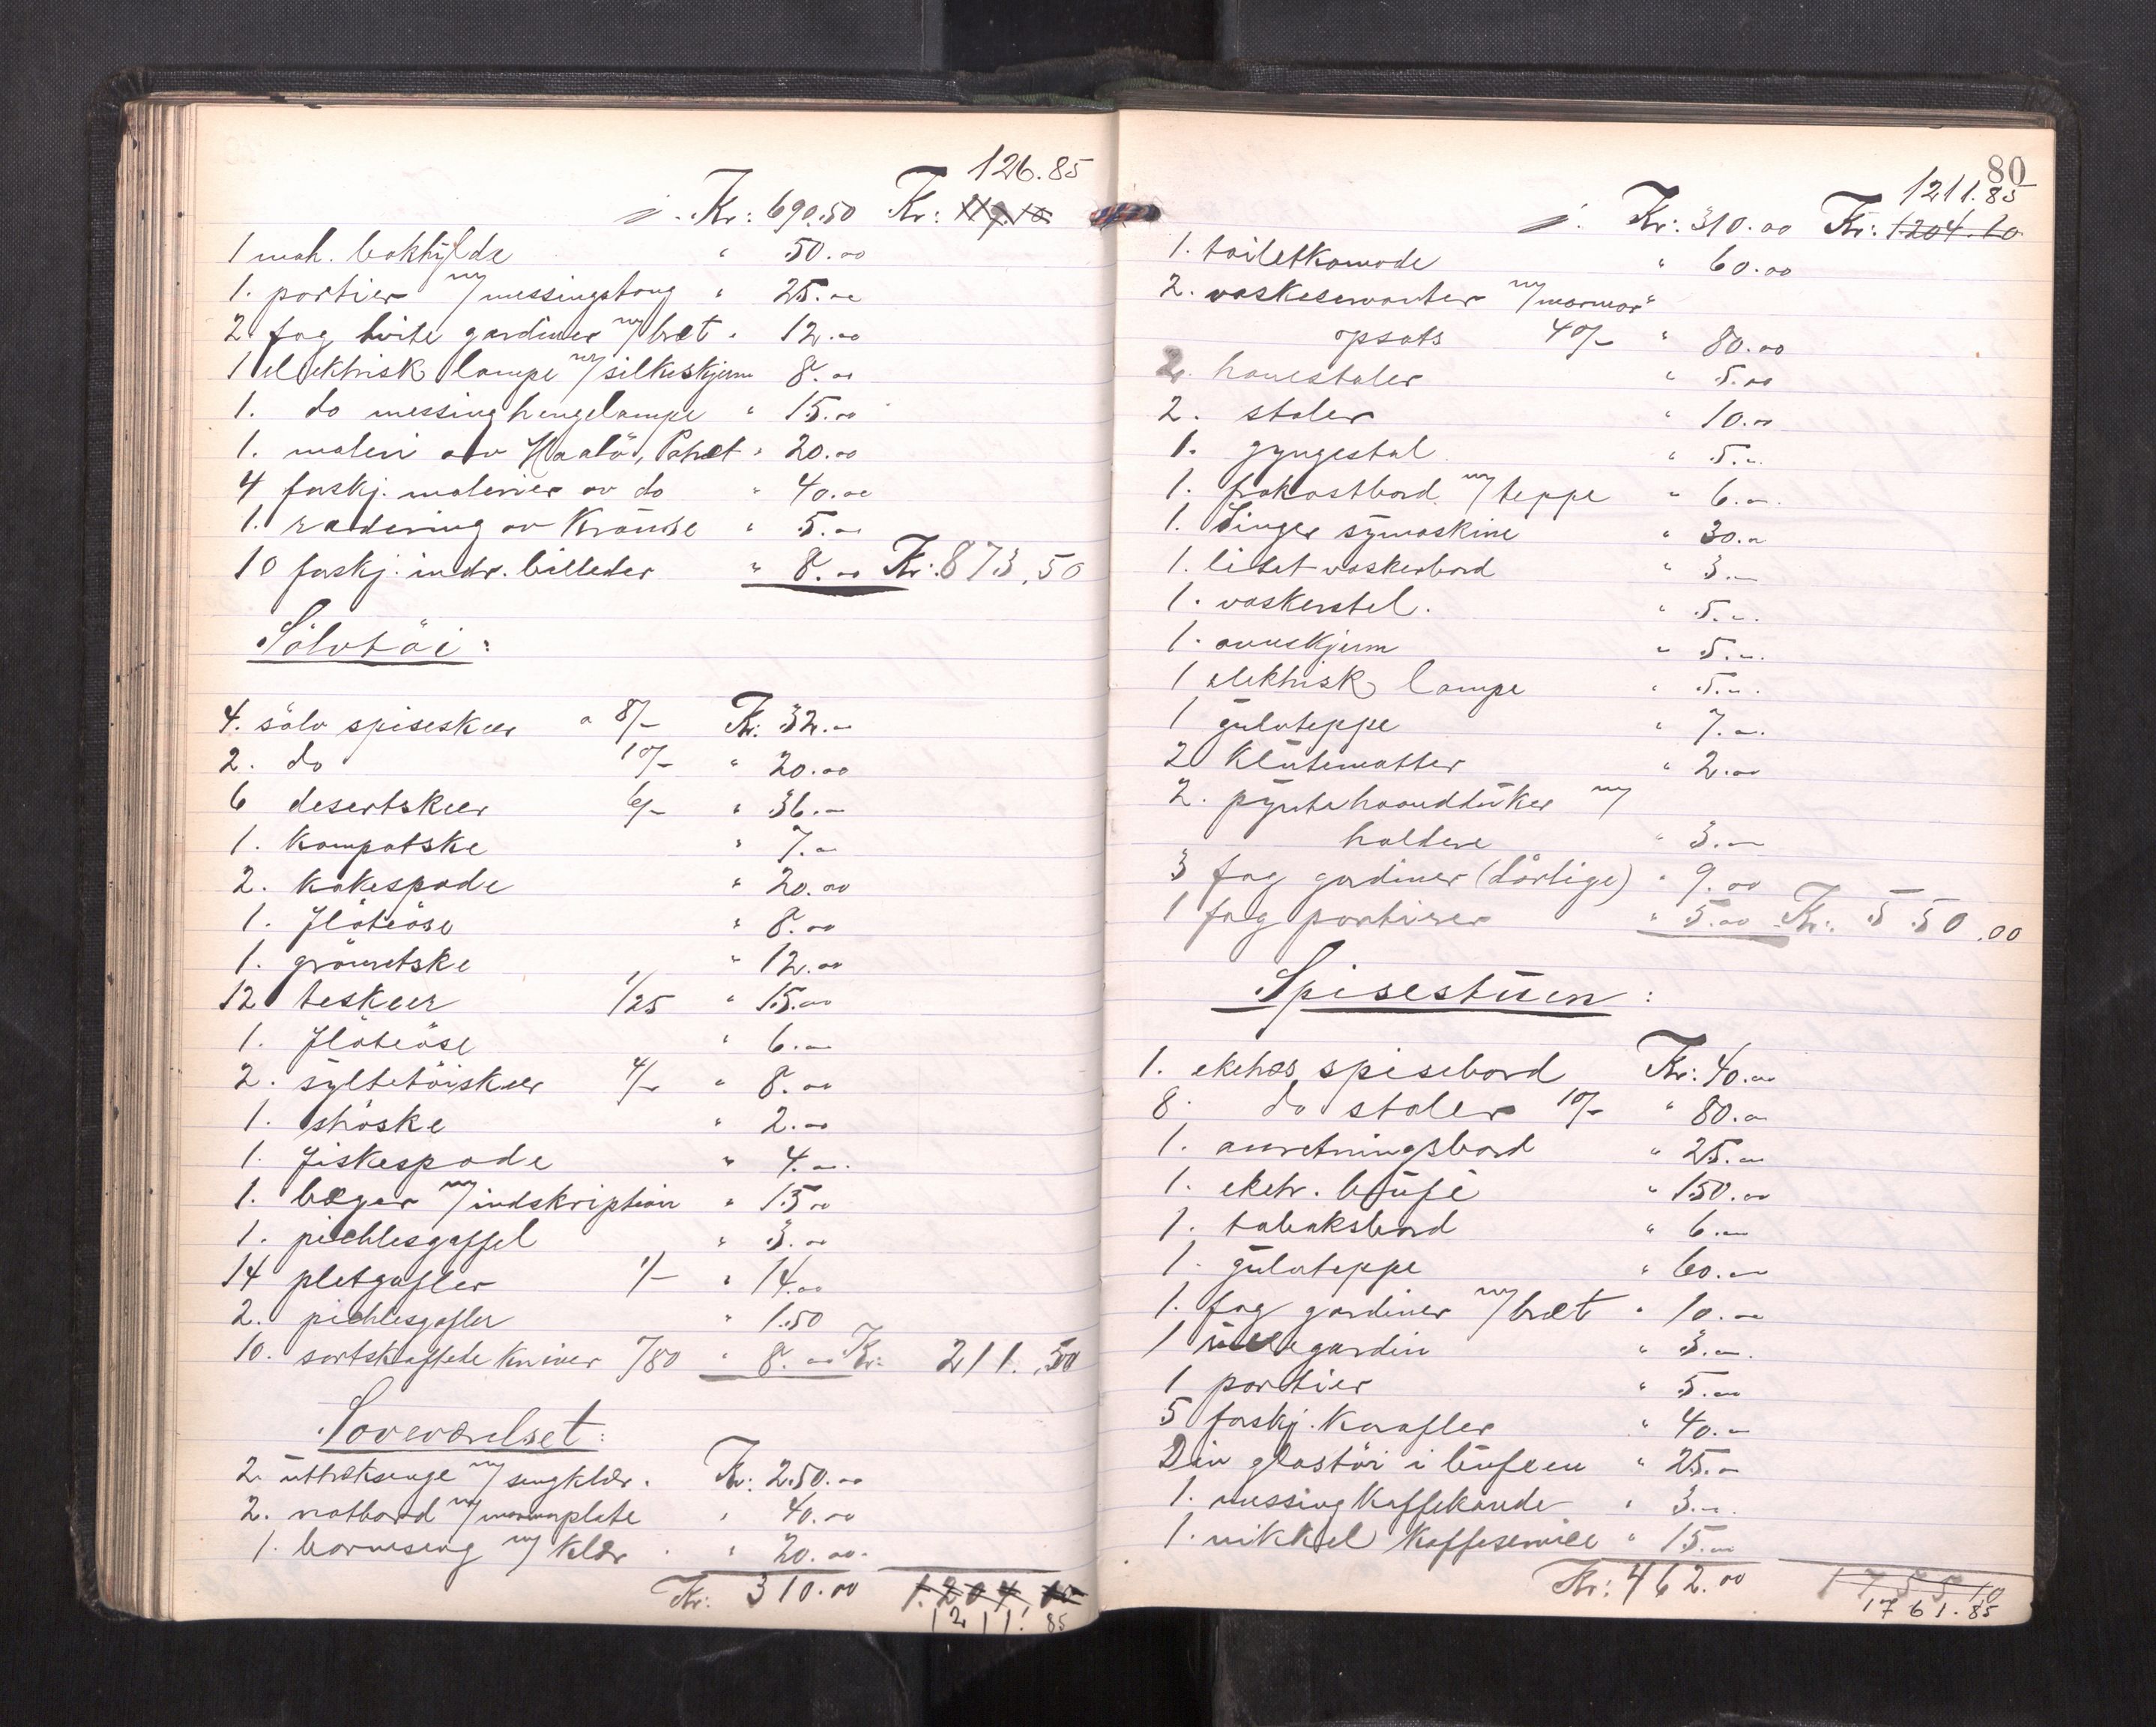 126.85
j. Kr: 690.50 Kr: 119.10
1 mah. bokhylde " 50.00
1. portier m/ messingstang " 25.00
2 fag hvite gardiner m/ bræt " 12.00
1 elektrisk lampe m/ silkeskjerm 8.00
1. do messing hengelampe " 15.00
1. maleri av Haalö, " 20.00
4 forskj. malerier av do " 40.00
1. radering av " 5.00
10 forskj. indr. billeder " 8.00 Kr: 873.50
Sölvtöi:
4. sölv spiseskeer a 8/- Kr: 32.-
2. do 10/- " 20.00
6 desertskeer 6/- " 36.-
1. kompotske " 7.-
2. kakespade " 20.00
1. flöteöse " 8.00
1. grönnetske " 12.00
12 teskeer 1/25 " 15.00
1. flöteöse " 6.-
2. syltetöiskeer 4/- " 8.00
1. ströske " 2.00
1. fiskespade " 4.-
1. bæger m/ indskription " 15.00
1. pichlesgaffel " 3.00
14 pletgafler 1/- " 14.00
2. pichlesgafler " 1.50
10. sortskaftede kniver /80 " 8.00 Kr: 211.50
Soveværelset:
2. uttræksenge m/ sengklær. Kr: 250.00
2. natbord m/ marmorplate " 40.00
1. barneseng m/ klær " 20.00
Kr: 310.00 1.204 10
1211.85
80
1211.85
j. Kr: 310.00 Kr: 1204.10
1. toiletkomode " 60.00
2. vaskeservanter m/ marmor-
opsats 40/- " 80.00
2. havestoler " 5.00
2. stoler " 10.00
1. gyngestol " 5.-
1. frokostbord m/ teppe " 6.-
1. Singer symaskine " 30.-
1. litet vaskerbord " 3.-
1. vaskerstel. " 5.-
1. ovnskjerm " 5.-
1 elektrisk lampe " 5.-
1 gulvteppe " 7.-
2 klutematter " 2.00
2. pyntehaandduker m/
holdere " 3.-
3 fag gardiner (dårlige) " 9.00
1 fag portierer " 5.00 Kr: 550.00
Spisestuen:
1. eketræs spisebord Kr: 40.00
8. do stoler 10/- " 80.-
1. anretningsbord " 25.-
1. eketr. buffé " 150.00
1. tobaksbord " 6.-
1. gulvteppe " 60.-
1. fag gardiner m/ bræt " 10.-
1 rullegardin " 3.-
1 portier " 5.-
5 forskj. karafler " 40.-
Div glastöi i buffeen " 25.-
1. messing kaffekande " 3.-
1. nikkel kaffeservice " 15.-
Kr: 462.00 1755 10
1761.85